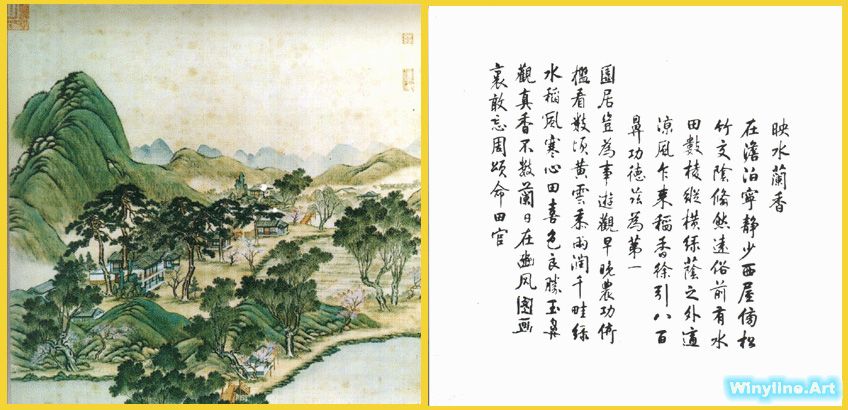 映水蘭香
在澹泊寧靜少西屋傍松
竹交陰翛然遠俗前有水
田數棱縱橫綠蔭之外適
涼風乍來稻香徐引八百
鼻功德茲為第一
園居豈為事遊觀早晚農功倚
檻看數頃黃雲黍雨潤千畦綠
水稻風寒心田喜色良勝玉鼻
觀真香不數蘭日在豳風圖畫
裏敢忘周頌命田官
Winyline.Art